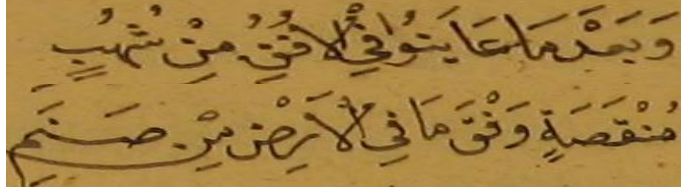 وَبَعْدَ مَا عَايَنُوا فِي الْأُفُقِ مِنْ شُهُبٍ
مُنْقَضَةٍ وَفْقَ مَا فِي الْأَرْضِ مِنْ صَنَمٍ